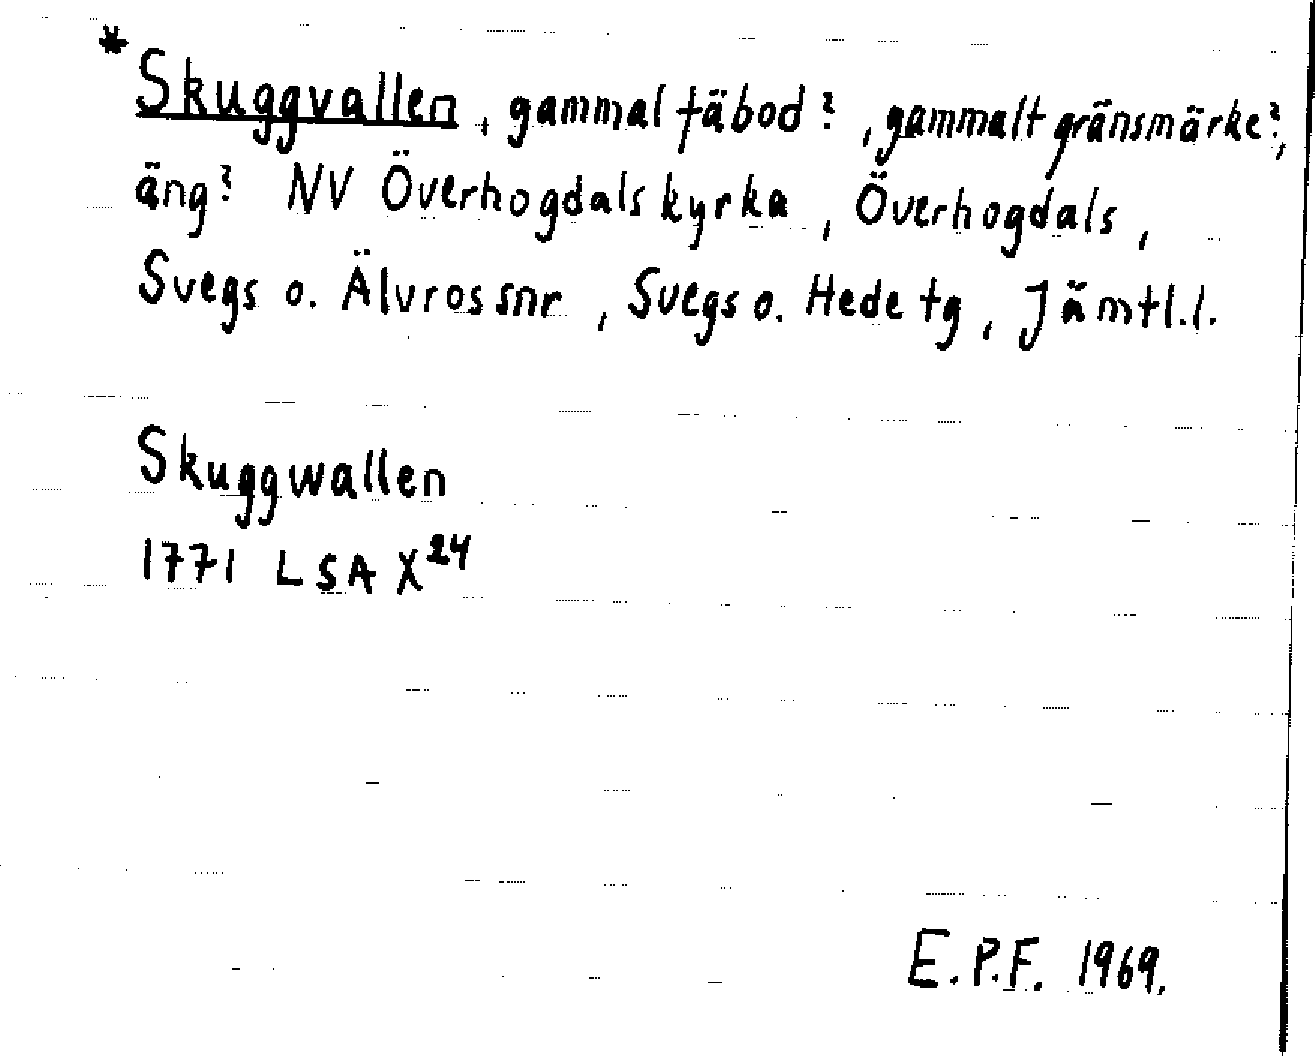 *Skuggvallen, gammal fäbod?, gammalt gränsmärke?,
äng? NV Överhogdals kyrka, Överhogdals,
Svegs o. Älvros snr, Svegs o. Hede tg, Jämtl.l.
Skuggwallen
1771 LSA X²⁴
E.P.F. 1969.